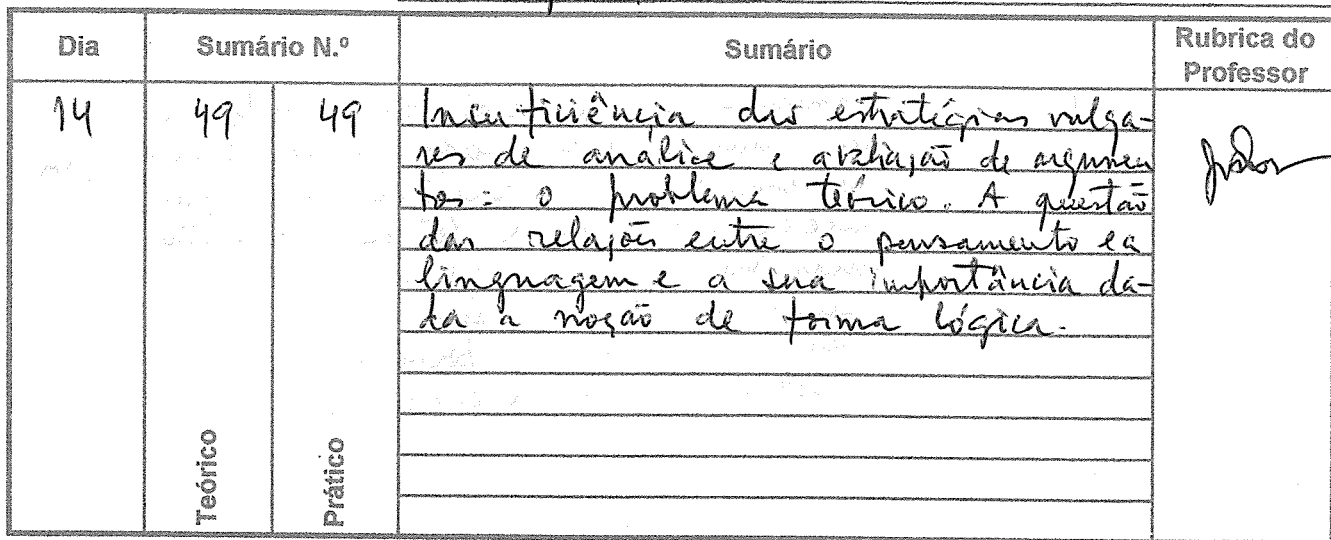 Dia Sumário N.º Sumário Rubrica do Professor
14 49 49 Insuficiência das estratégias vulga-
res de análise e avaliação de argumen
tos: o problema teórico. A questão
das relações entre o pensamento e a
linguagem e a sua importância da-
da a noção de forma lógica.
Teórico Prático